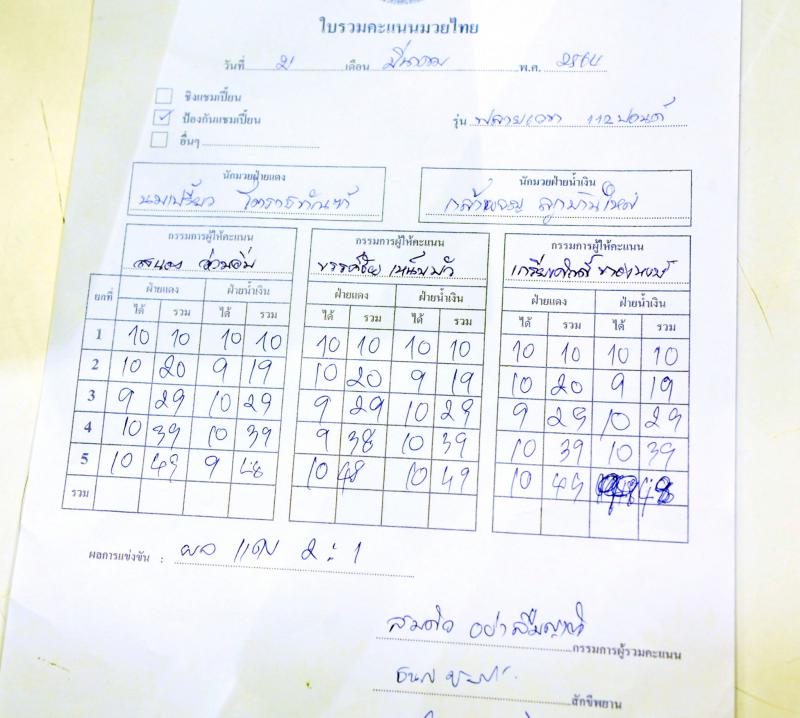 ใบรวมคะแนนมวยไทย
วันที่ 21 เดือน มีนาคม พ.ศ. 2564
ชิงแชมเปี้ยน
✓ ป้องกันแชมเปี้ยน รุ่น ฟลายเวท 112 ปอนด์
อื่นๆ
นักมวยฝ่ายแดง นักมวยฝ่ายน้ำเงิน
นมเปรี้ยว ลูกบ้านใหญ่
กรรมการผู้ให้คะแนน กรรมการผู้ให้คะแนน กรรมการผู้ให้คะแนน
ยกที่ ฝ่ายแดง ฝ่ายน้ำเงิน ฝ่ายแดง ฝ่ายน้ำเงิน ฝ่ายแดง ฝ่ายน้ำเงิน
ได้ รวม ได้ รวม ได้ รวม ได้ รวม ได้ รวม ได้ รวม
1 10 10 10 10 10 10 10 10 10 10 10 10
2 10 20 9 19 10 20 9 19 10 20 9 19
3 9 29 10 29 9 29 10 29 9 29 10 29
4 10 39 10 39 9 38 10 39 10 39 10 39
5 10 49 9 48 10 48 10 49 10 49 48
รวม
ผลการแข่งขัน : ผล แดง 2:1
กรรมการผู้รวมคะแนน
สักขีพยาน